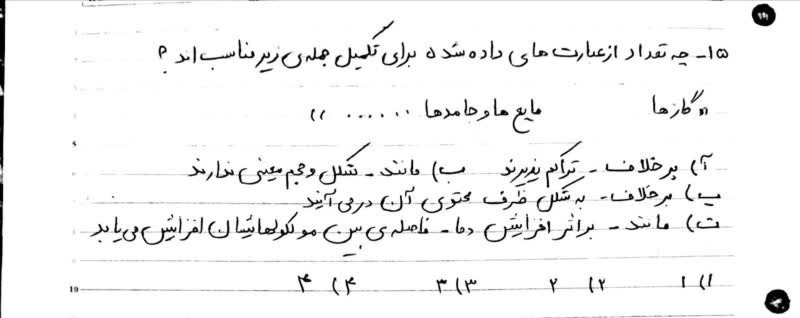 ۱۵- چه تعداد از عبارت های داده شده برای تکمیل جمله‌ی زیر مناسب اند ؟
«گازها مایع ها و جامدها ......»
آ) برخلاف - تراکم پذیرند ب) مانند - شکل و حجم معینی ندارند
پ) برخلاف - به شکل ظرف محتوی آن در می آیند
ت) مانند - براثر افزایش دما - فاصله‌ی بین مولکولهایشان افزایش می یابد
۱) ۱ ۲) ۲ ۳) ۳ ۴) ۴
10